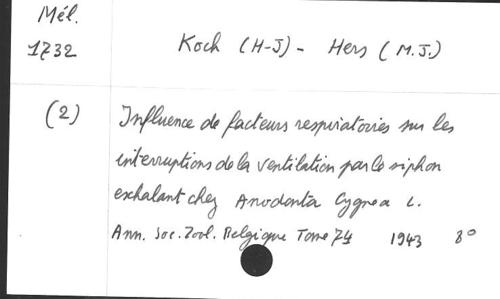 Mél.
1732
Koch (H-J) - Hers (M.J.)
(2)
Influence de facteurs respiratoires sur les
interruptions de la ventilation par le siphon
exhalant chez Anodonta Cygnea L.
Ann. Soc. Zool. Belgique Tome 74 1943 8°